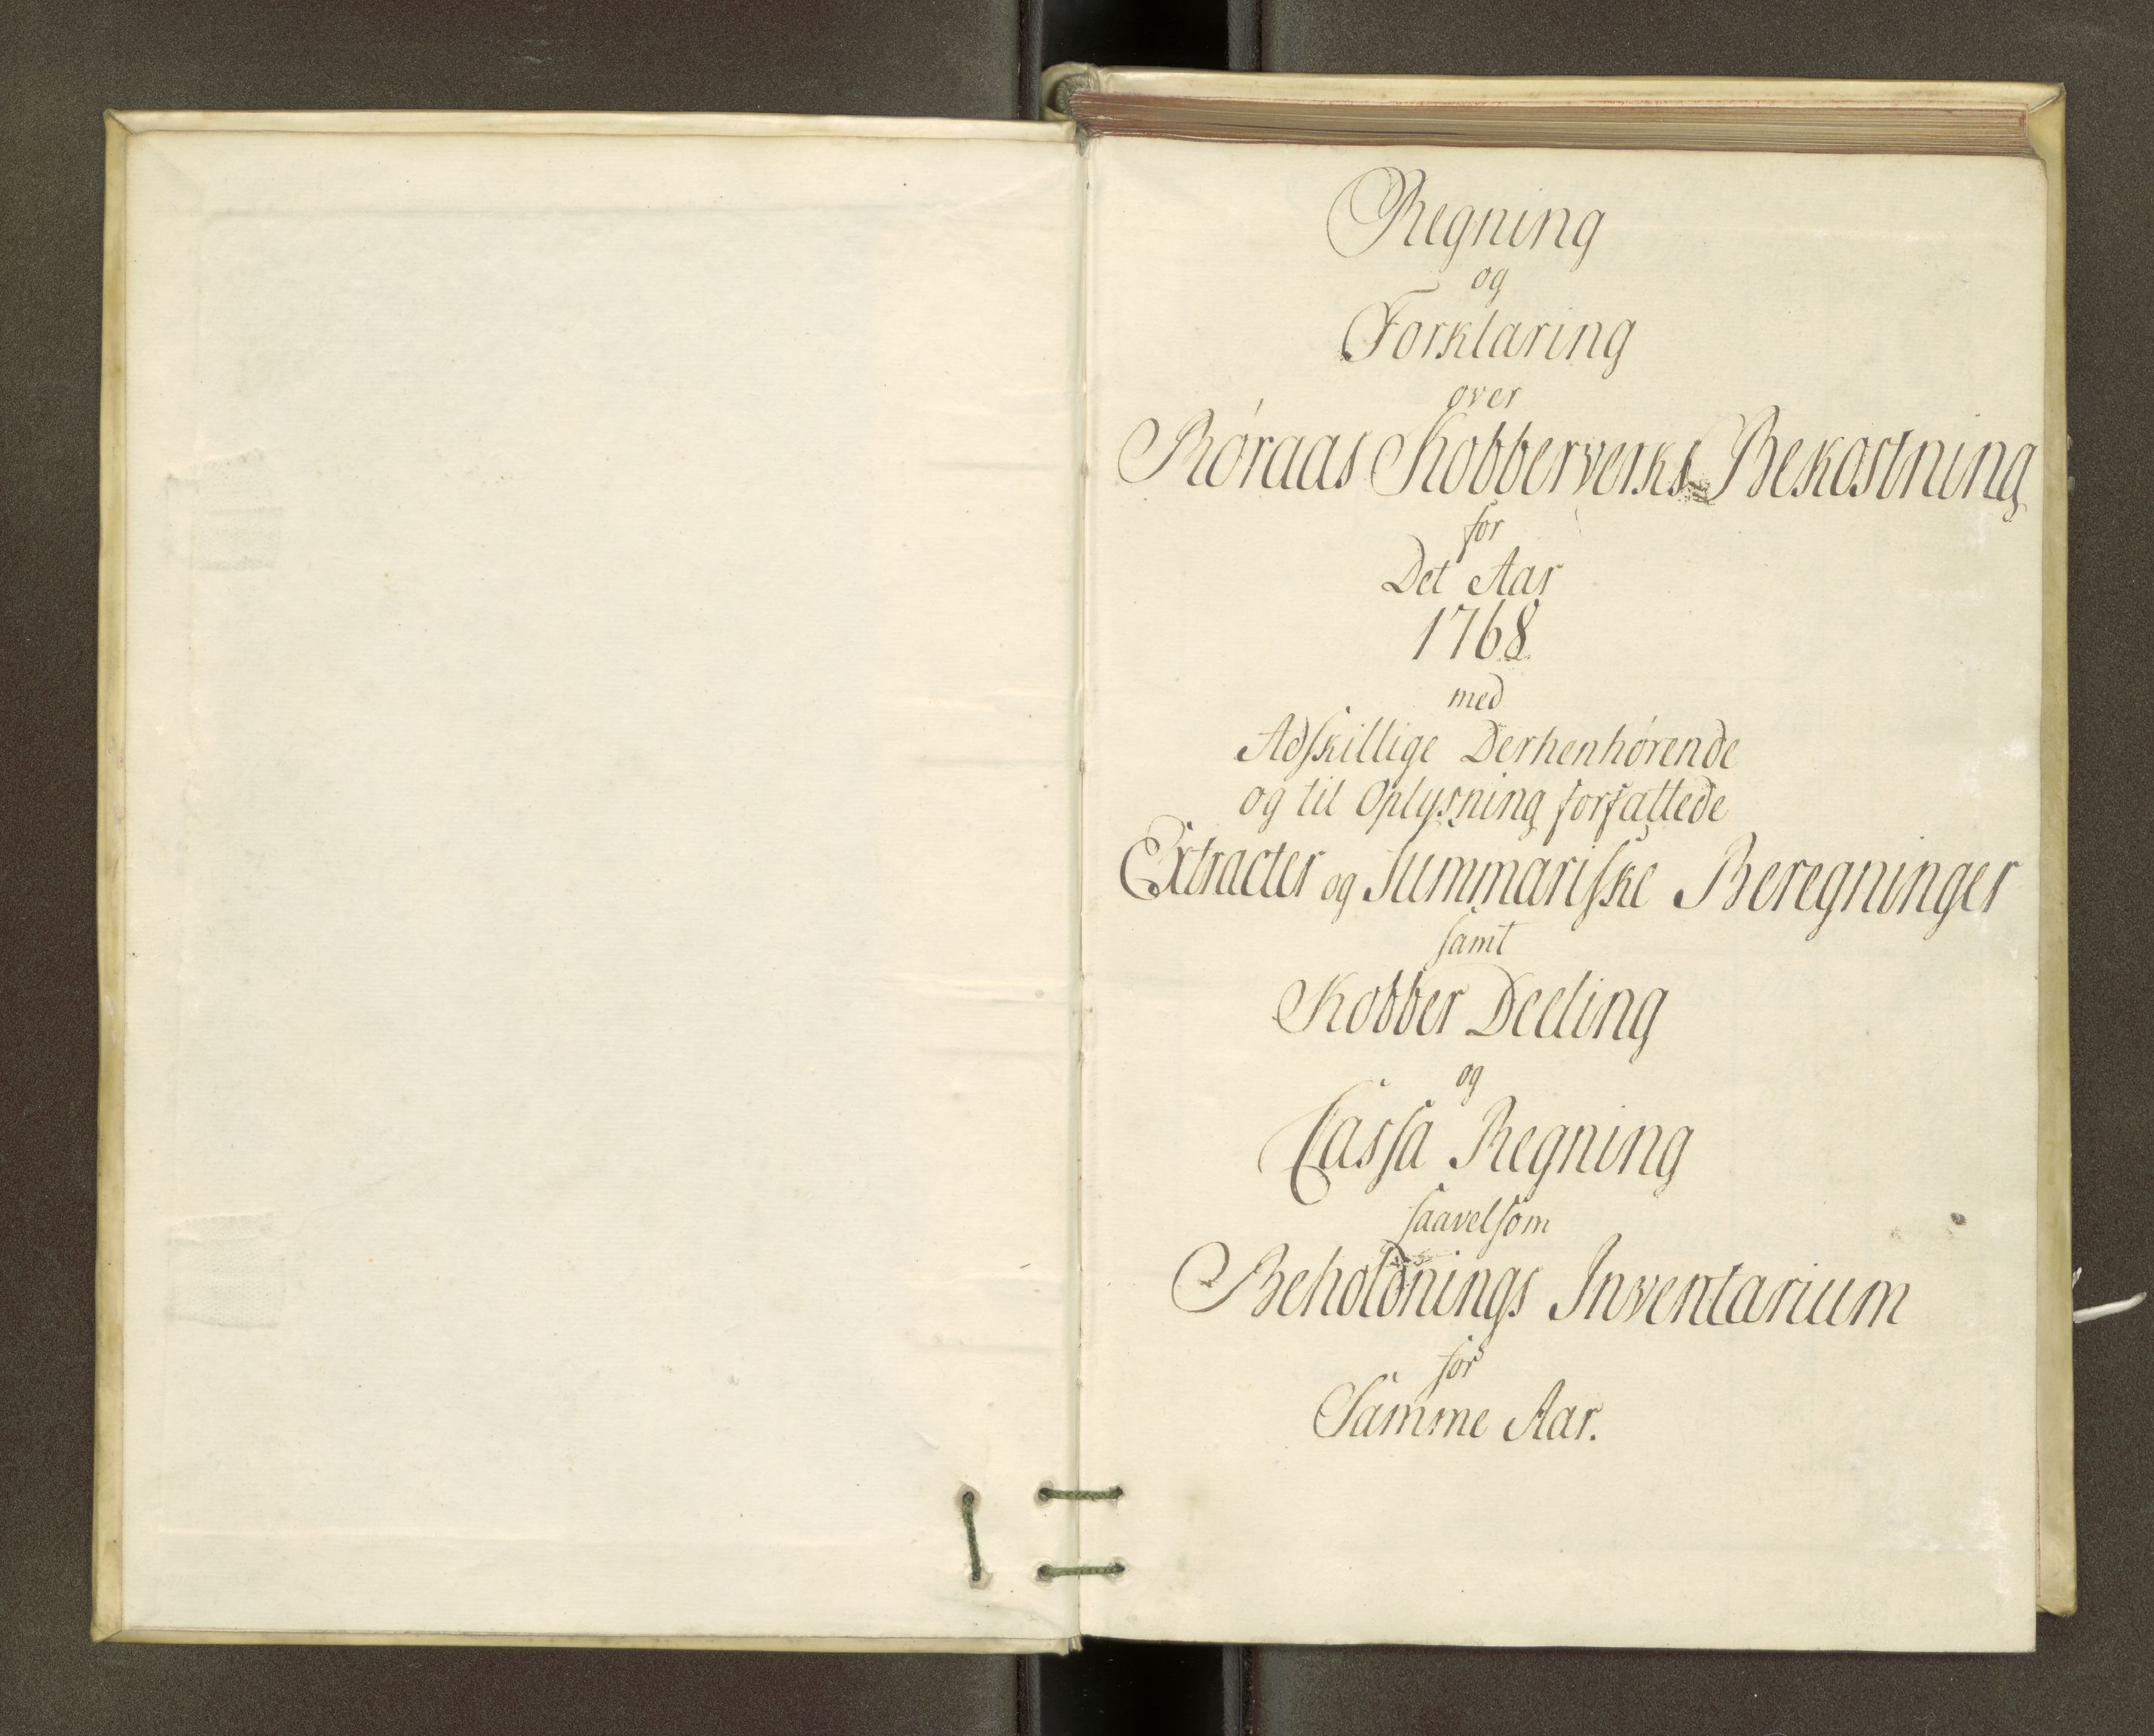 Regning
og
Forklaring
over
Røraas Kobberverks Bekostning
for
Det Aar
1768
med
Adskillige Derhenhørende
og til Oplysning forfattede
Extracter og Summariske Beregninger
samt
Kobber Deeling
og
Cassa Regning
saavelsom
Beholdnings Inventarium
for
Samme Aar.